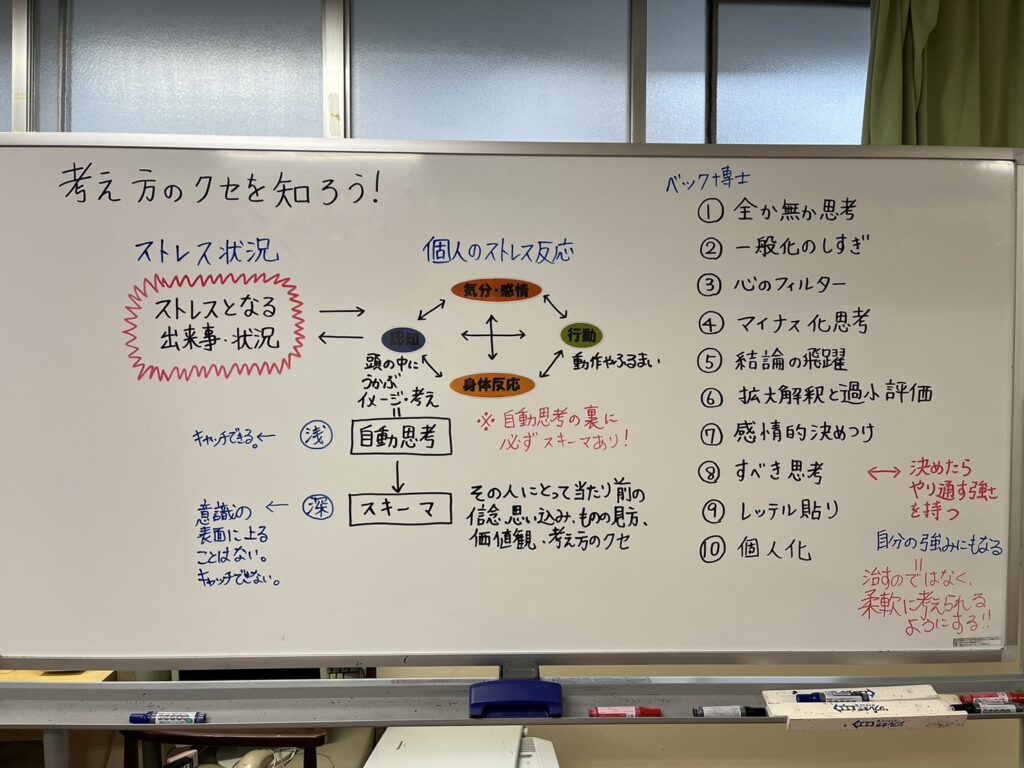 考え方のクセを知ろう!
ストレス状況
ストレスとなる
出来事・状況
個人のストレス反応
気分・感情
認知
行動
身体反応
頭の中に
うかぶ
イメージ・考え
動作やふるまい
=
キャッチできる。←
浅
自動思考
※自動思考の裏に
必ずスキーマあり!
意識の
表面に上る
ことはない。
キャッチできない。
深
スキーマ
その人にとって当たり前の
信念、思い込み、ものの見方、
価値観・考え方のクセ
ベック博士
① 全か無か思考
② 一般化のしすぎ
③ 心のフィルター
④ マイナス化思考
⑤ 結論の飛躍
⑥ 拡大解釈と過小評価
⑦ 感情的決めつけ
⑧ すべき思考
↔ 決めたら
やり通す強さ
を持つ
⑨ レッテル貼り
⑩ 個人化
自分の強みにもなる
=
治すのではなく、
柔軟に考えられる
ようにする!!